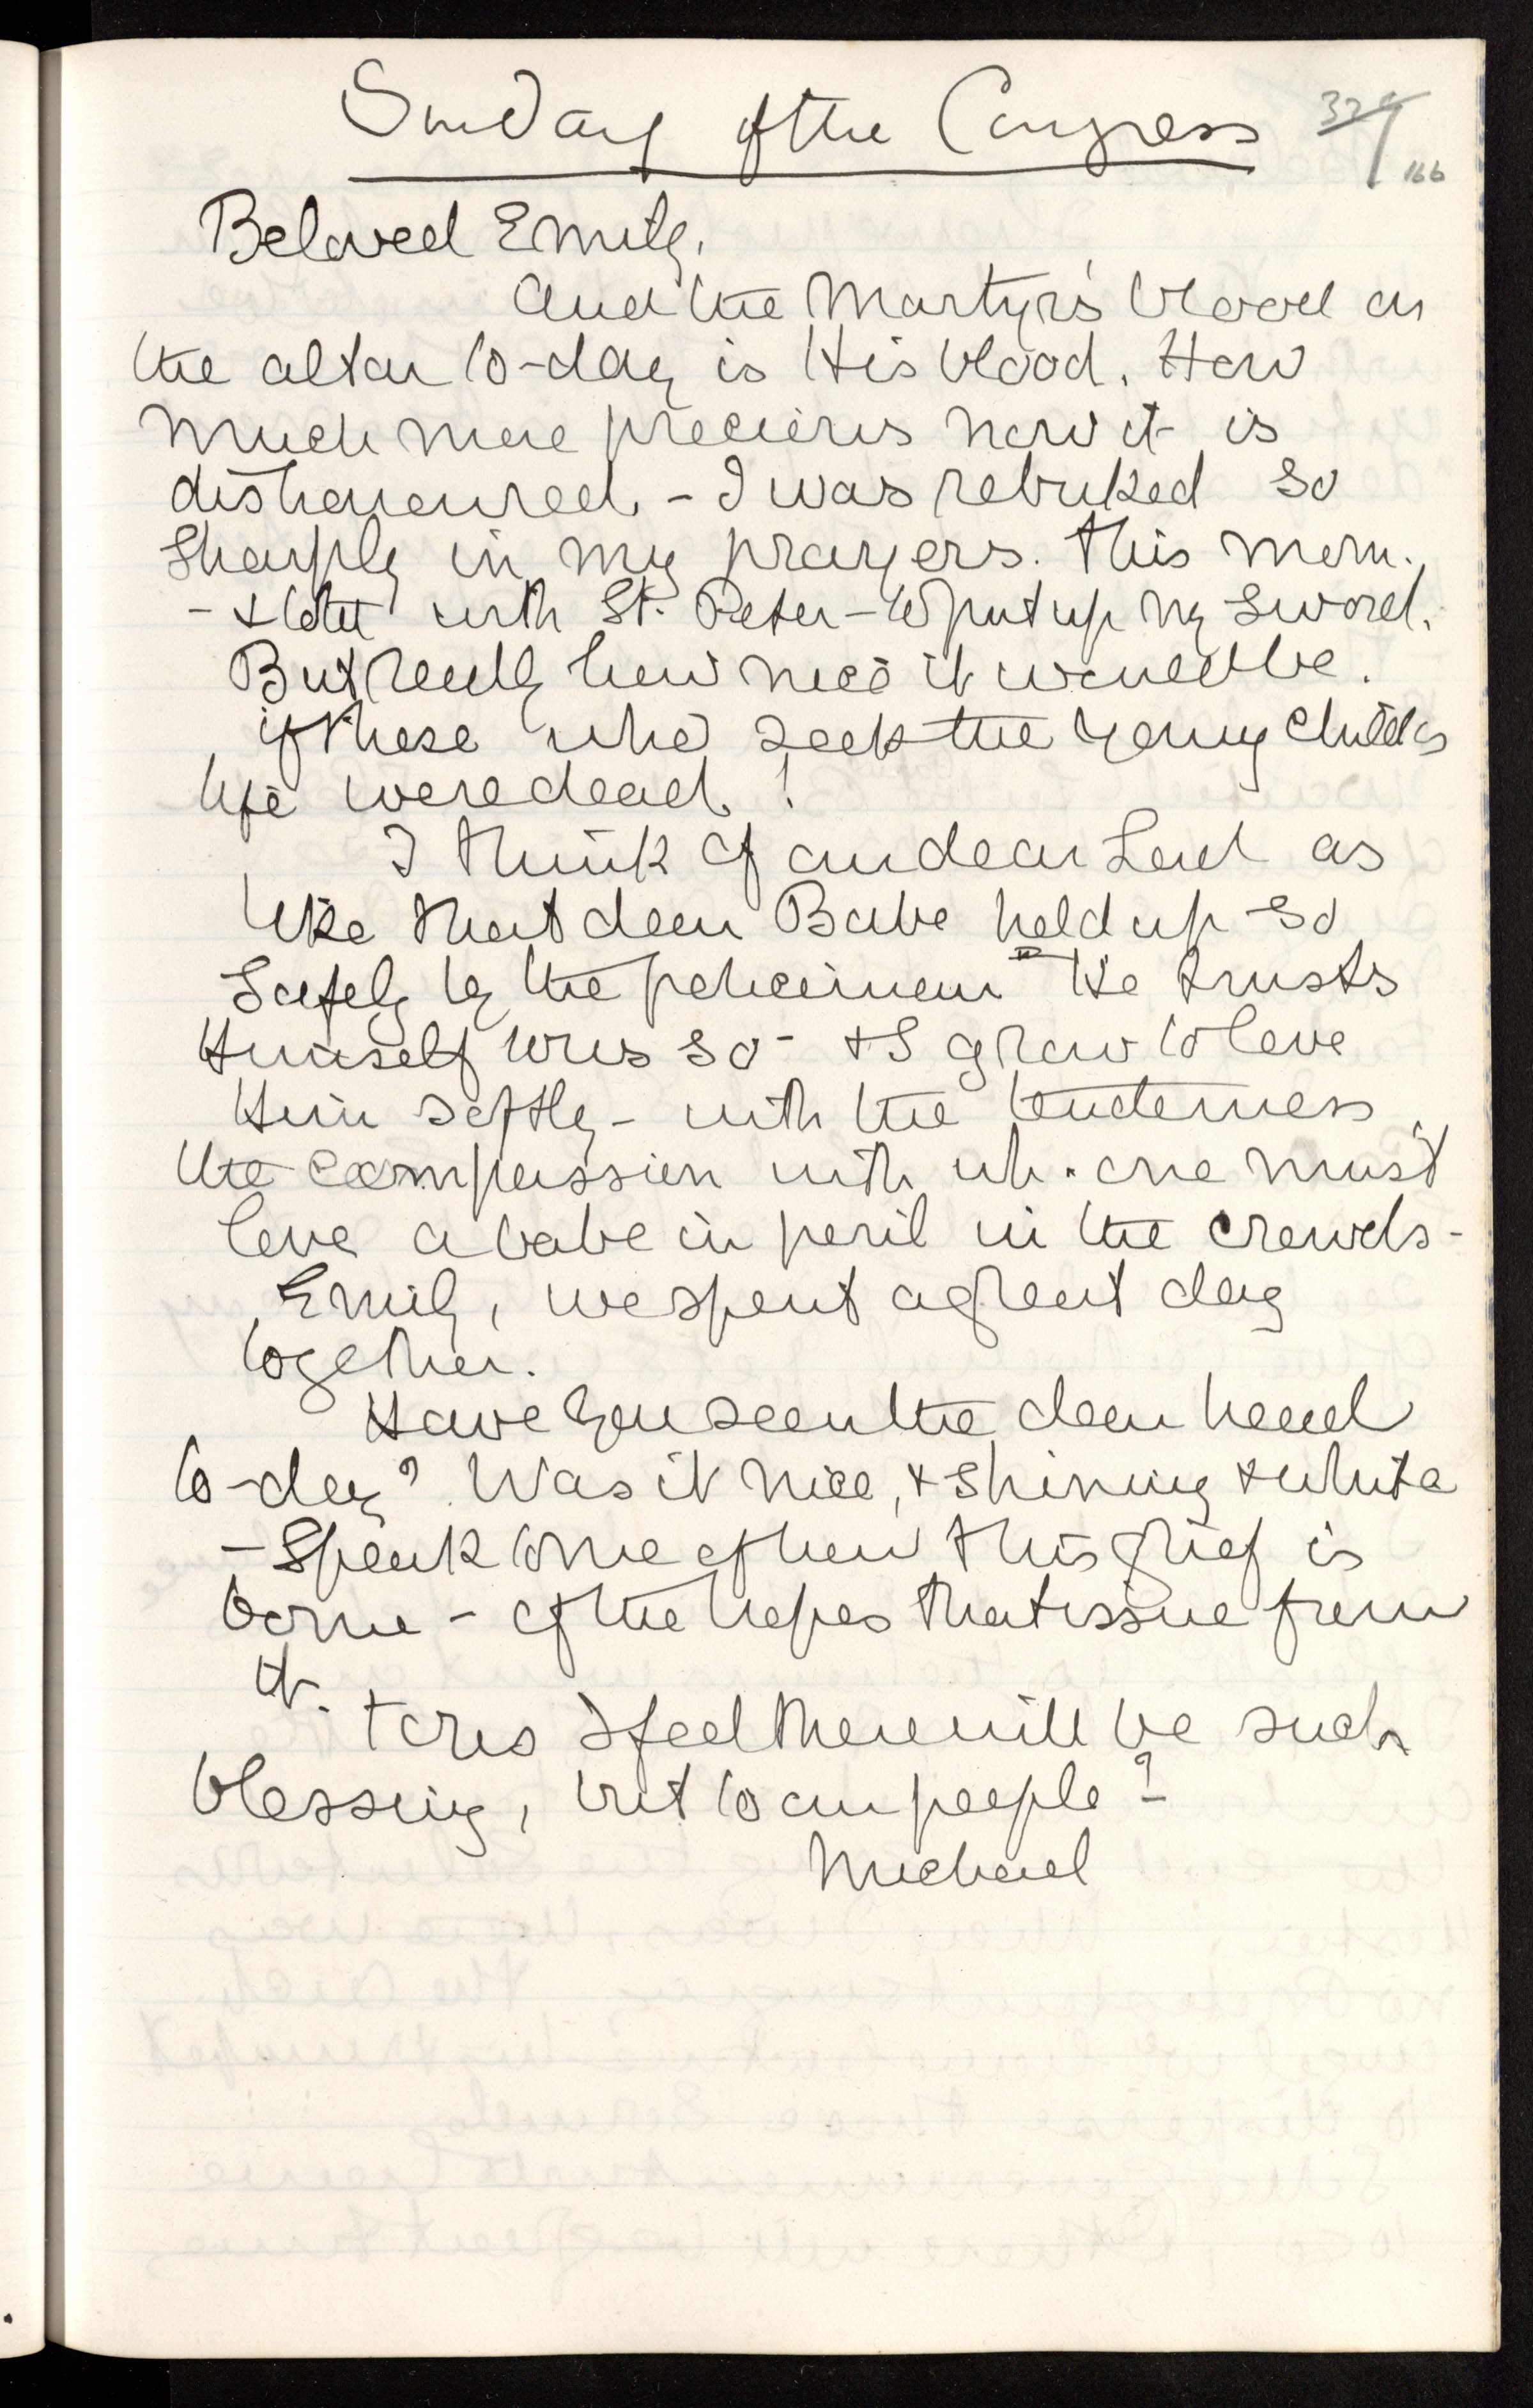 Sunday of the Congress
329
166
Beloved Emily,
And the Martyr's blood on
the altar to-day is His blood. How
much more precious now it is
dishonoured - I was rebuked so
sharply in my prayers. this morn.
- & told with St. Peter - to put up my sword.
But really how nice it would be.
if those who seek the young child's
life were dead!
I think of our dear Lord as
like that dear Babe held up so
safely by the policeman He trusts
Himself to us so - & I grow to love
Him softly - with the tenderness,
the compassion with wh. one must
love a babe in peril in the crowds -
Emily, we spent a great day
together.
Have you seen the dear head
to-day? Was it nice, & shining & white
- Speak to me of how this grief is
borne - of the hopes that issue from
it. To us I feel there will be such
blessing, but to our people? -
Michael